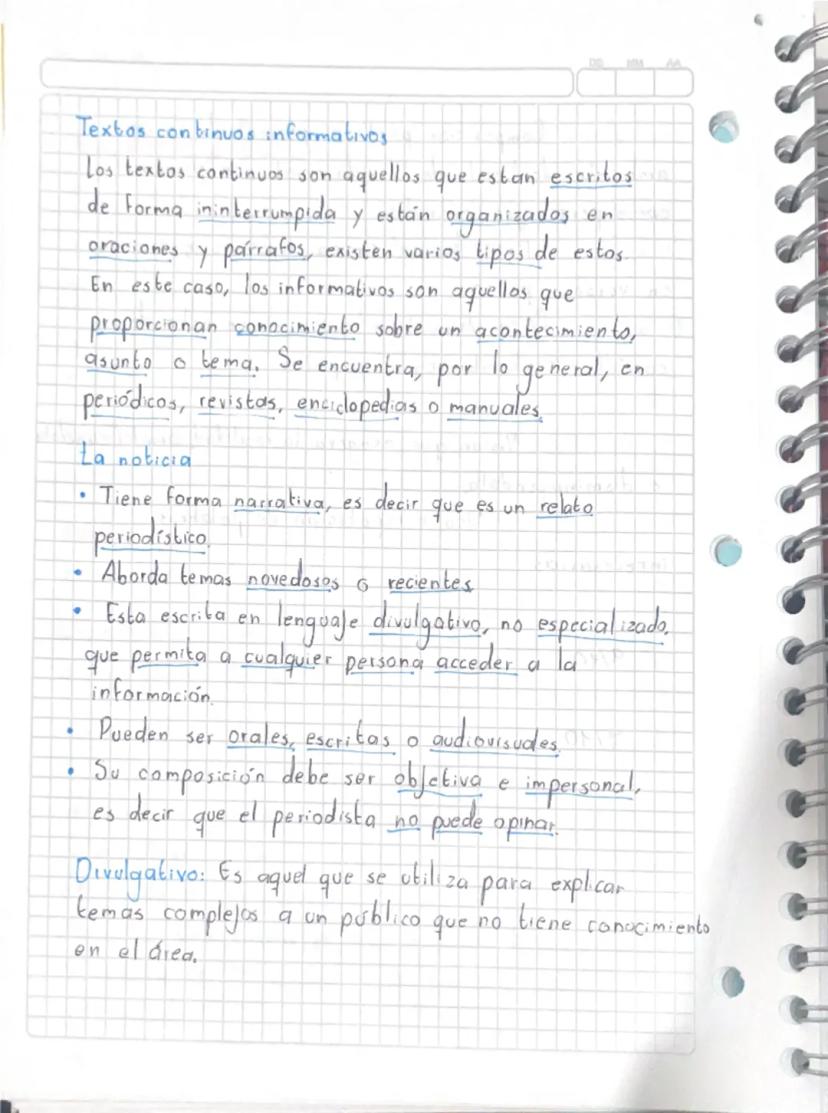 DD MM AA
Textos continuos informativos
Los textos continuos son aquellos que estan escritos
de forma ininterrumpida y están organizados en
oraciones y párrafos, existen varios tipos de estos.
En este caso, los informativos son aquellos que
proporcionan conocimiento sobre un acontecimiento,
asunto o tema. Se encuentra, por lo general, en
periódicos, revistas, enciclopedias o manuales.
La noticia
• Tiene forma narrativa, es decir que es un relato
periodístico.
• Aborda temas novedosos o recientes
• Esta escrita en lenguaje divulgativo, no especializado,
que permita a cualquier persona acceder a la
información.
• Pueden ser orales, escritas o audiovisuales.
• Su composición debe ser objetiva e impersonal,
es decir que el periodista no puede opinar.
Divulgativo: Es aquel que se utiliza para explicar
temas complejos a un público que no tiene conocimiento
en el área.